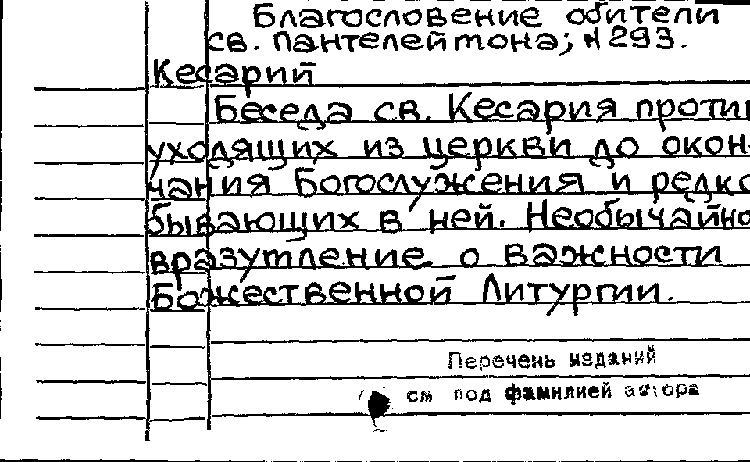 Благословение обители
св. Пантелеймона; № 293.
Кесарий
Беседа св. Кесария против
уходящих из церкви до окон-
чания Богослужения и редко
бывающих в ней. Необычайно
вразумление о важности
Божественной Литургии.
Перечень изданий
см под фамилией автора